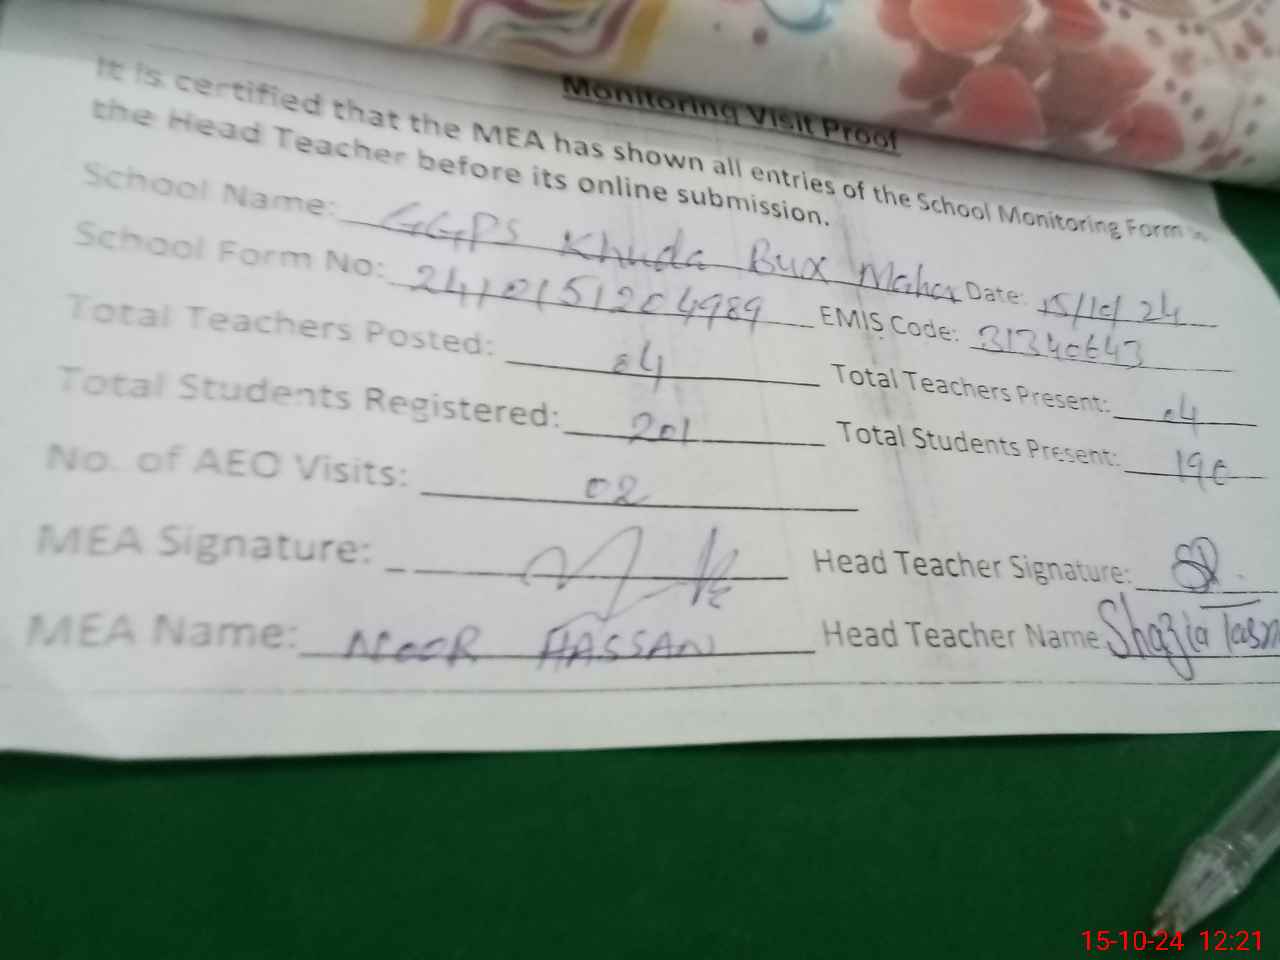 Monitoring Visit Proof
It is certified that the MEA has shown all entries of the School Monitoring Form
the Head Teacher before its online submission.
School Name: GGPS Khuda Bux Mahar Date: 15/10/24
School Form No: 2410151204989 EMIS Code: 31340643
Total Teachers Posted: 04 Total Teachers Present: 04
Total Students Registered: 201 Total Students Present: 190
No. of AEO Visits: 02
MEA Signature: Head Teacher Signature:
MEA Name: NOOR HASSAN Head Teacher Name: Shazia Tasn
15-10-24 12:21